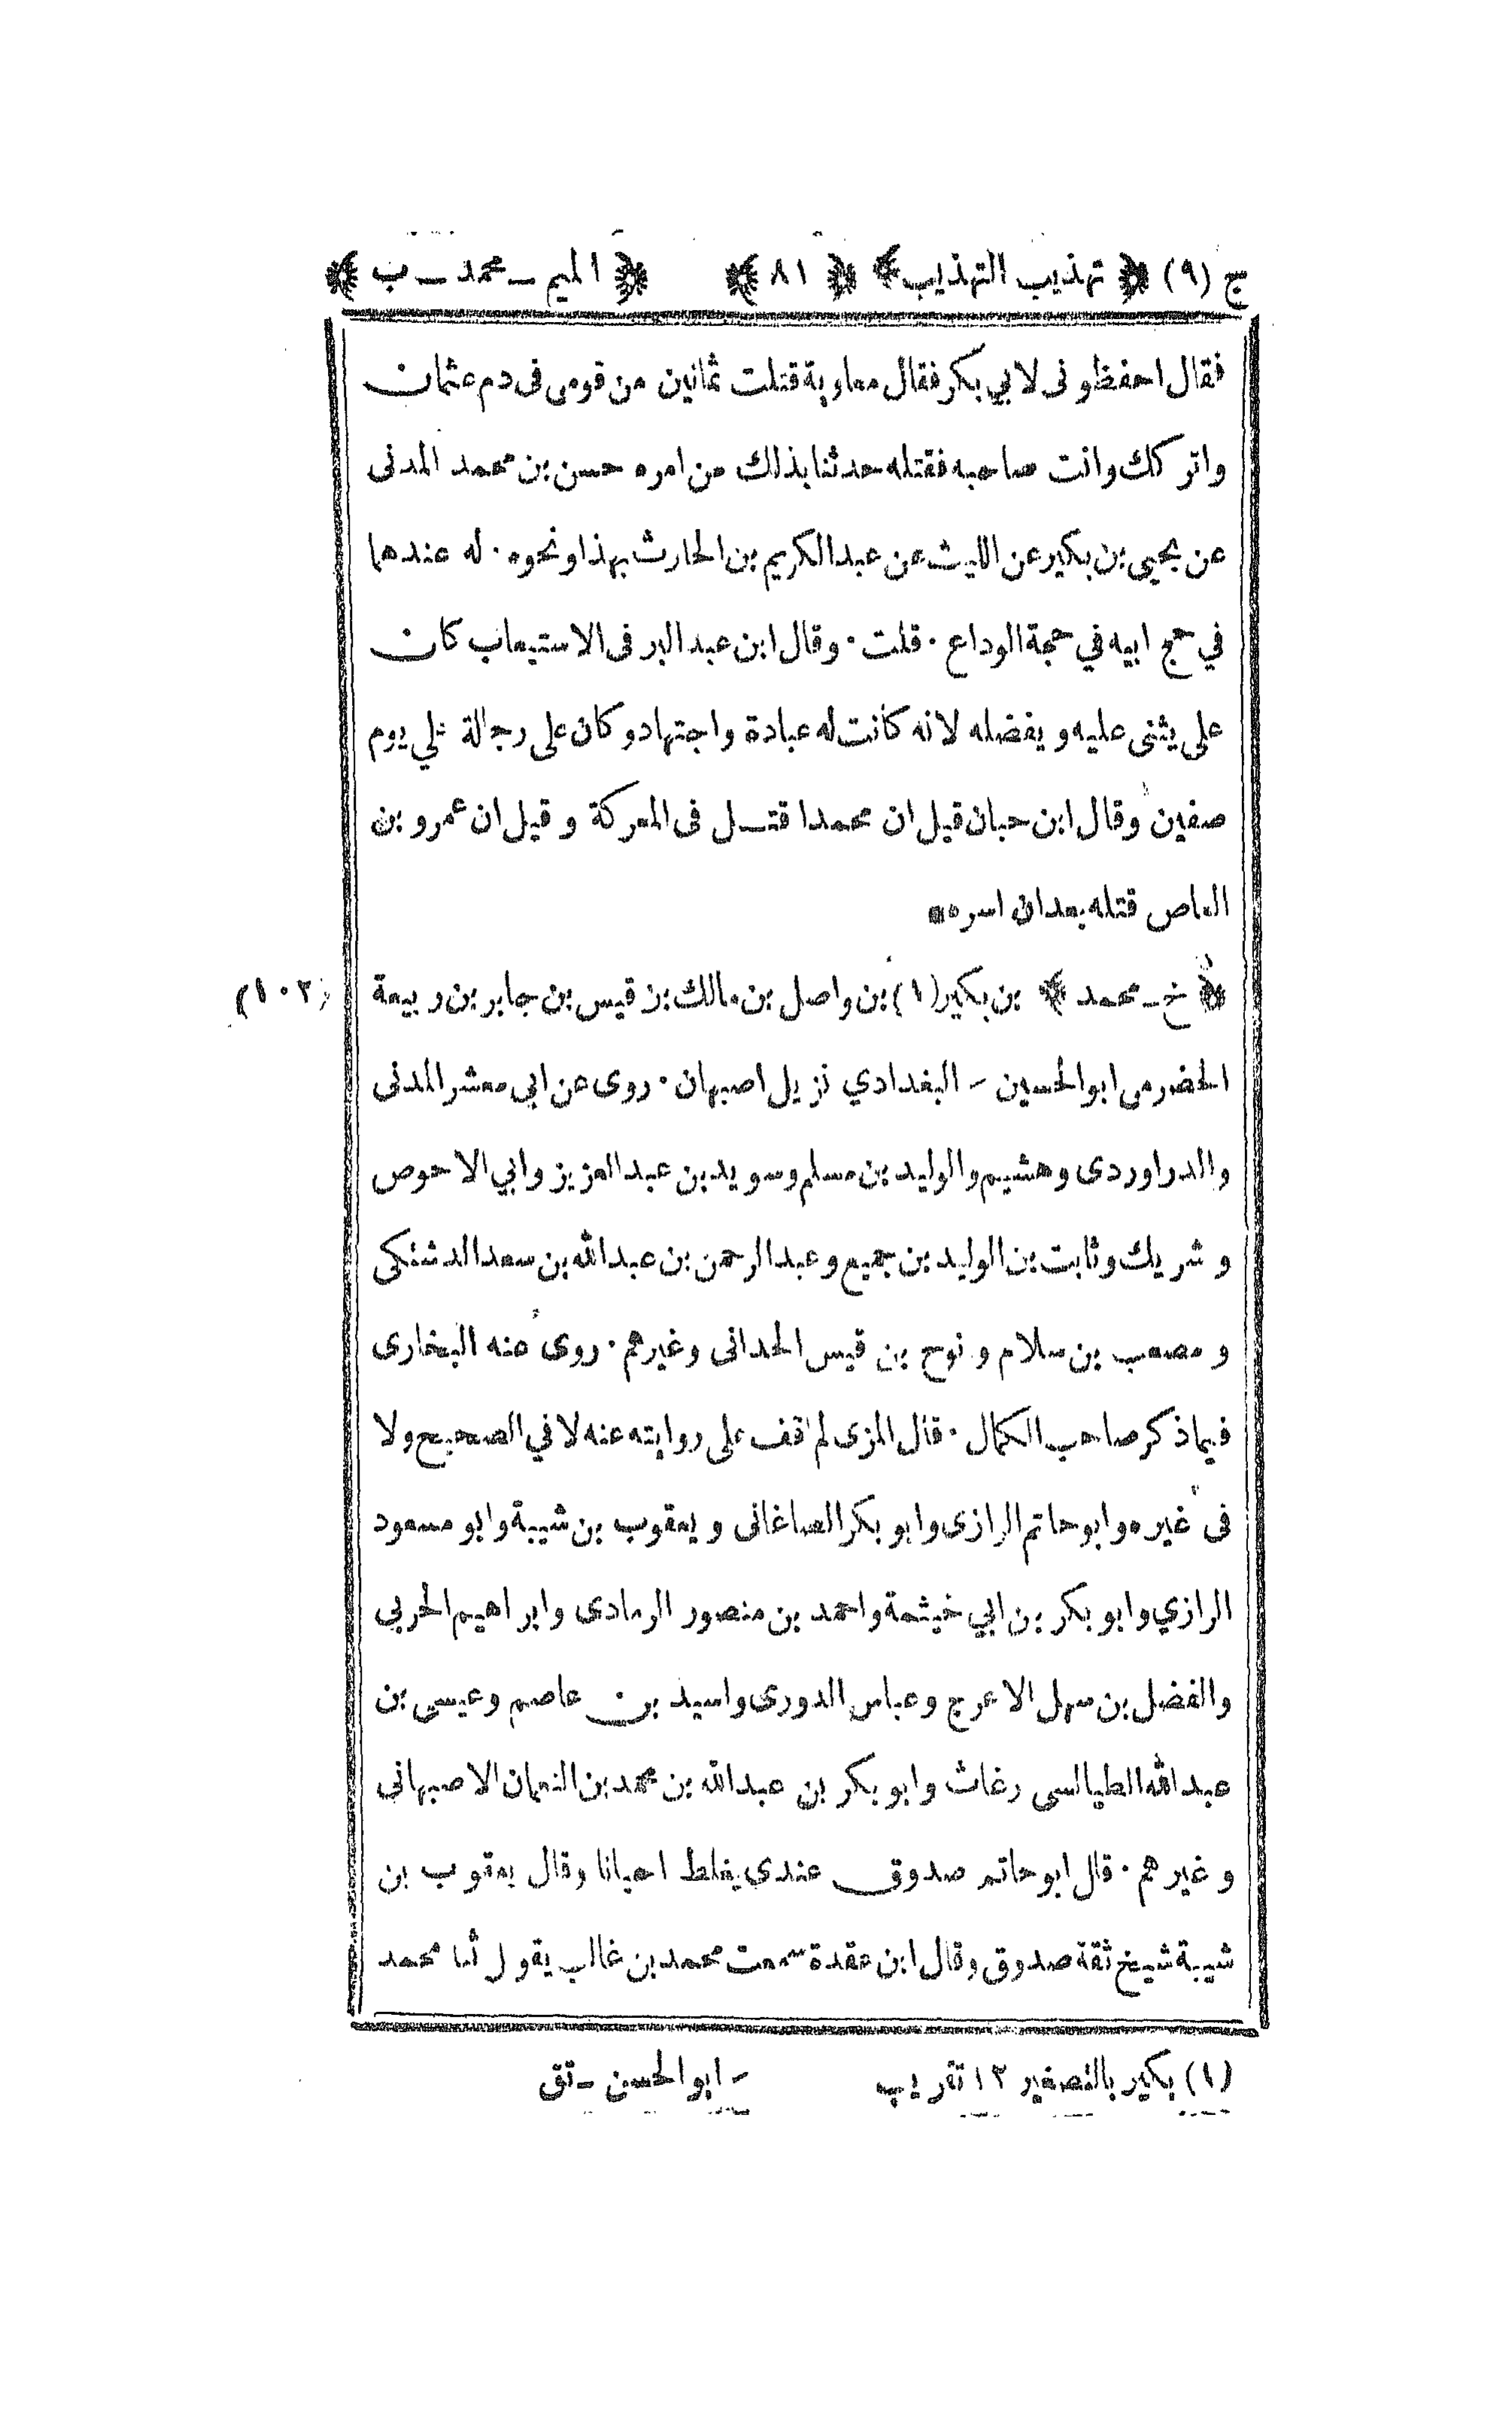 ج (٩) ﴿ تهذيب التهذيب ﴾ ﴿ ٨١ ﴾ ﴿ الميم ـ محمد ـ ب ﴾
فقال احفظونى لابي بكر فقال معاوية قتلت ثمانين من قومى فى دم عثمان
واتركك وانت صاحبه فقتله حدثنا بذلك من امره حسن بن محمد المدنى
عن يحيى بن بكير عن الليث عن عبد الكريم بن الحارث بهذا ونحوه ٠ له عندهما
في حج ابيه في حجة الوداع ٠ قلت ٠ وقال ابن عبد البر فى الاستيعاب كان
على يثنى عليه و يفضله لانه كانت له عبادة واجتهاد وكان على رجالة علي يوم
صفين وقال ابن حبان قيل ان محمدا قتل فى المعركة و قيل ان عمرو بن
العاص قتله بعد ان اسره *
﴿ خ ـ محمد ﴾ بن بكير (١) بن واصل بن مالك بن قيس بن جابر بن ربيعة (١٠٢)
الحضرمى ابو الحسين ـ البغدادي نزيل اصبهان ٠ روى عن ابي معشر المدنى
والدراوردى وهشيم والوليد بن مسلم وسويد بن عبد العزيز وابي الاحوص
و شريك وثابت بن الوليد بن جميع وعبد الرحمن بن عبد الله بن سعد الدشتكى
و مصعب بن سلام و نوح بن قيس الحدانى وغيرهم ٠ روى عنه البخارى
فيما ذكر صاحب الكمال ٠ قال المزى لم اقف على روايته عنه لا في الصحيح ولا
فى غيره وابو حاتم الرازى وابو بكر الصاغانى و يعقوب بن شيبة وابو مسعود
الرازي وابو بكر بن ابي خيثمة واحمد بن منصور الرمادى وابراهيم الحربي
والفضل بن سهل الاعرج وعباس الدورى واسيد بن عاصم وعيسى بن
عبد الله الطيالسى رغاث وابو بكر بن عبد الله بن محمد بن النعمان الاصبهانى
و غيرهم ٠ قال ابو حاتم صدوق عندى يغلط احيانا وقال يعقوب بن
شيبة شيخ ثقة صدوق وقال ابن عقدة سمعت محمد بن غالب يقول ثنا محمد
(١) بكير بالتصغير ١٢ تقريب ـ ابو الحسن ـ تق